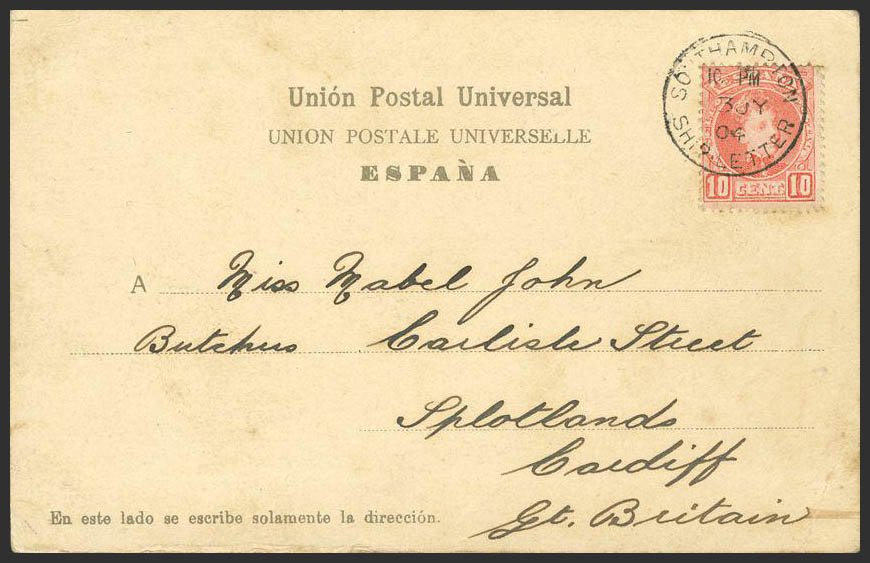 Unión Postal Universal
UNION POSTALE UNIVERSELLE
ESPAÑA
SOUTHAMPTON
10 PM
3 JY
04
SHIP LETTER
10 CENT 10
A Miss Mabel John
Butchers Carlisle Street
Splotlands
Cardiff
Gt. Britain
En este lado se escribe solamente la dirección.